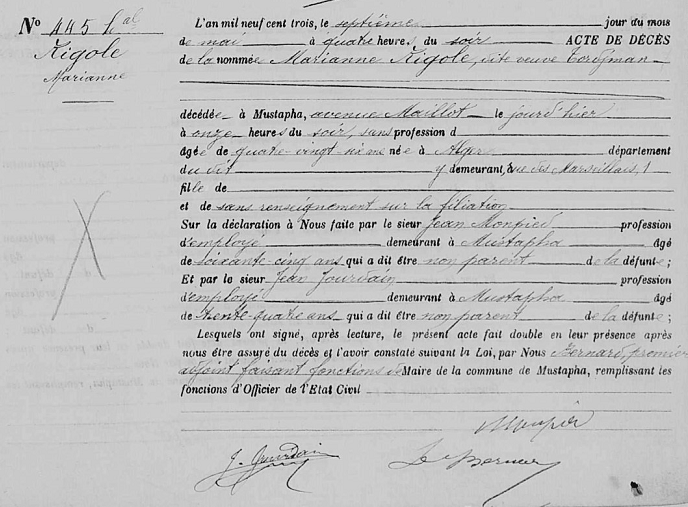 N° 445 hal
Rigole
Marianne
L'an mil neuf cent trois, le septième jour du mois
de mai à quatre heures, du soir ACTE DE DÉCÈS
de la nommée Marianne Rigole, dite veuve Tordjman
décédée à Mustapha, avenue Maillot le jourd'hier
à onze heures du soir, sans profession d
âgée de quatre-vingt née à Alger département
du dit y demeurant, rue des Marseillais, 1
fille de
et de sans renseignement sur la filiation
Sur la déclaration à Nous faite par le sieur Jean Monpied profession
d'employé demeurant à Mustapha âgé
de soixante-cinq ans qui a dit être non parent de la défunte;
Et par le sieur Jean Jourdain profession
d'employé demeurant à Mustapha âgé
de trente-quatre ans qui a dit être non parent de la défunte;
Lesquels ont signé, après lecture, le présent acte fait double en leur présence après
nous être assuré du décès et l'avoir constaté suivant la Loi, par Nous Bernard, premier
adjoint faisant fonctions de Maire de la commune de Mustapha, remplissant les
fonctions d'Officier de l'Etat Civil
J. Jourdain